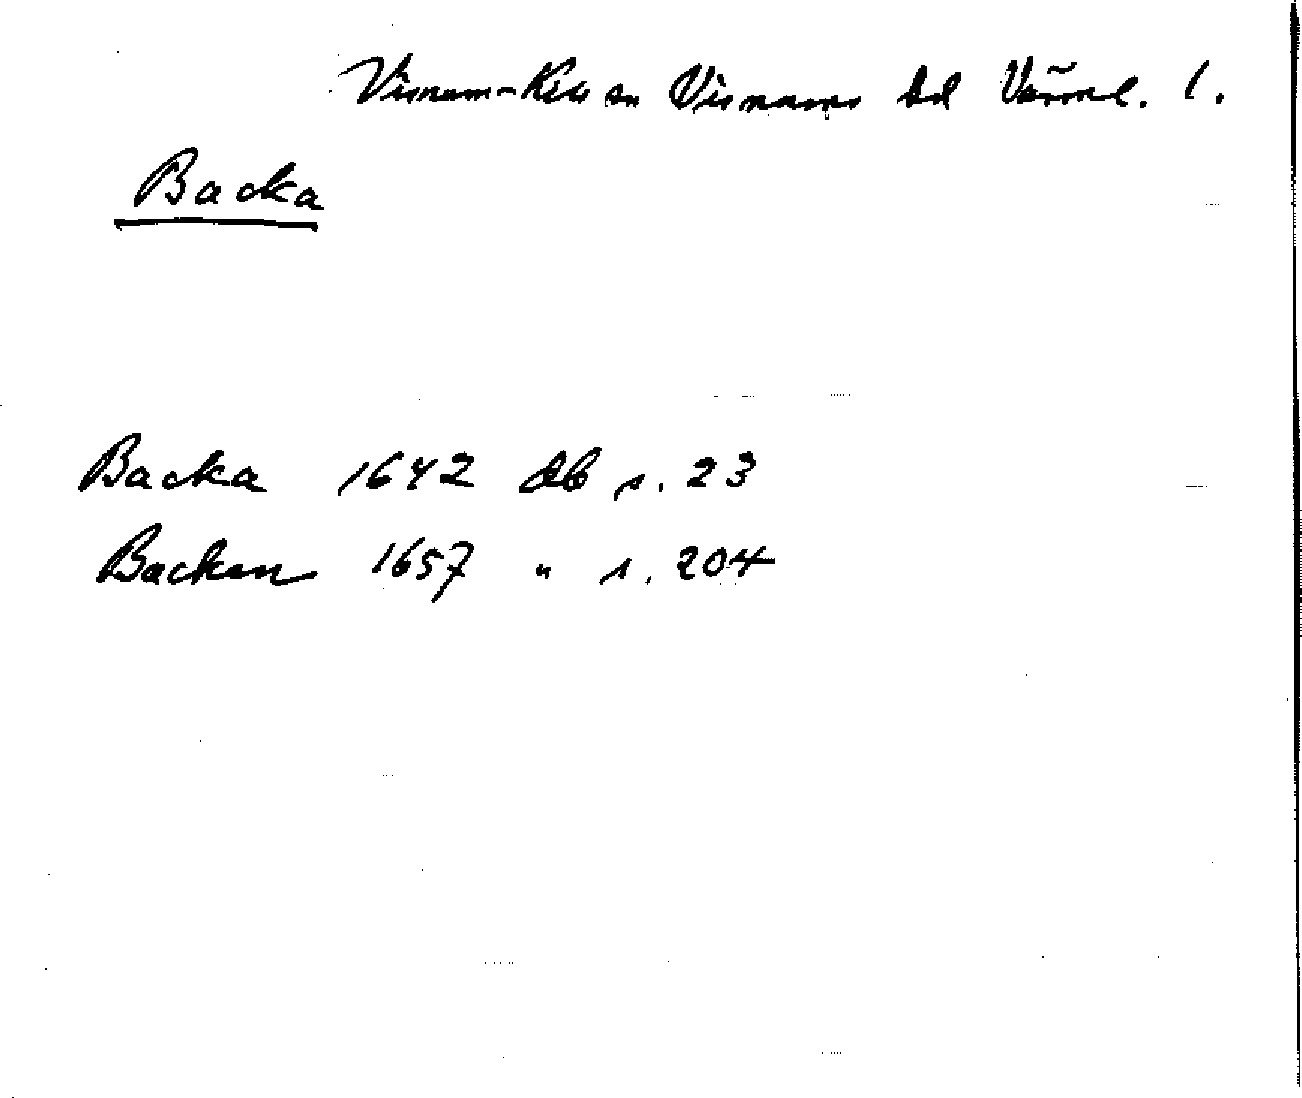 Visnum-Kil sn Visnums hd Värml. l.
Backa
Backa 1642 db s. 23
Backen 1657 " s. 204